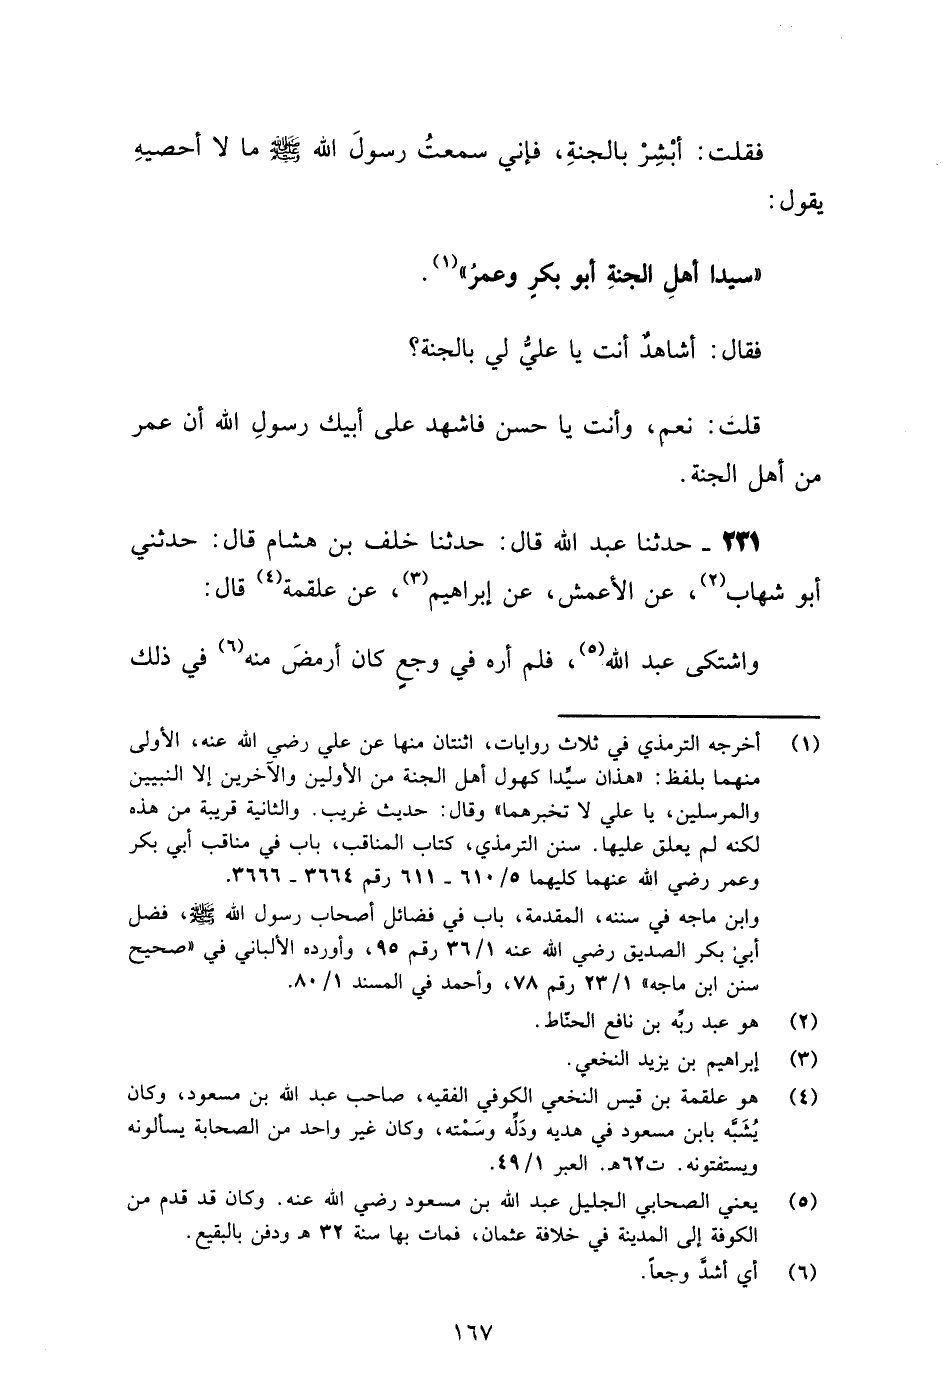 فقلت: أبْشِرْ بالجنةِ، فإني سمعتُ رسولَ الله ﷺ ما لا أحصيهِ
يقول:
«سيدا أهلِ الجنةِ أبو بكرٍ وعمرُ»(١).
فقال: أشاهدٌ أنت يا عليُّ لي بالجنة؟
قلت: نعم، وأنت يا حسن فاشهد على أبيك رسولِ الله أن عمر
من أهل الجنة.
٢٣١ ـ حدثنا عبد الله قال: حدثنا خلف بن هشام قال: حدثني
أبو شهاب(٢)، عن الأعمش، عن إبراهيم(٣)، عن علقمة(٤) قال:
واشتكى عبد الله(٥)، فلم أره في وجعٍ كان أرمضَ منه(٦) في ذلك
(١) أخرجه الترمذي في ثلاث روايات، اثنتان منها عن علي رضي الله عنه، الأولى
منهما بلفظ: «هذان سيِّدا كهول أهل الجنة من الأولين والآخرين إلا النبيين
والمرسلين، يا علي لا تخبرهما» وقال: حديث غريب. والثانية قريبة من هذه
لكنه لم يعلق عليها. سنن الترمذي، كتاب المناقب، باب في مناقب أبي بكر
وعمر رضي الله عنهما كليهما ٥/ ٦١٠ ـ ٦١١ رقم ٣٦٦٤ ـ ٣٦٦٦.
وابن ماجه في سننه، المقدمة، باب في فضائل أصحاب رسول الله ﷺ، فضل
أبي بكر الصديق رضي الله عنه ١/ ٣٦ رقم ٩٥، وأورده الألباني في «صحيح
سنن ابن ماجه» ١/ ٢٣ رقم ٧٨، وأحمد في المسند ١/ ٨٠.
(٢) هو عبد ربِّه بن نافع الحنّاط.
(٣) إبراهيم بن يزيد النخعي.
(٤) هو علقمة بن قيس النخعي الكوفي الفقيه، صاحب عبد الله بن مسعود، وكان
يُشَبَّه بابن مسعود في هديه ودَلِّه وسَمْته، وكان غير واحد من الصحابة يسألونه
ويستفتونه. ت٦٢هـ. العبر ١/ ٤٩.
(٥) يعني الصحابي الجليل عبد الله بن مسعود رضي الله عنه. وكان قد قدم من
الكوفة إلى المدينة في خلافة عثمان، فمات بها سنة ٣٢ هـ ودفن بالبقيع.
(٦) أي أشدَّ وجعاً.
١٦٧